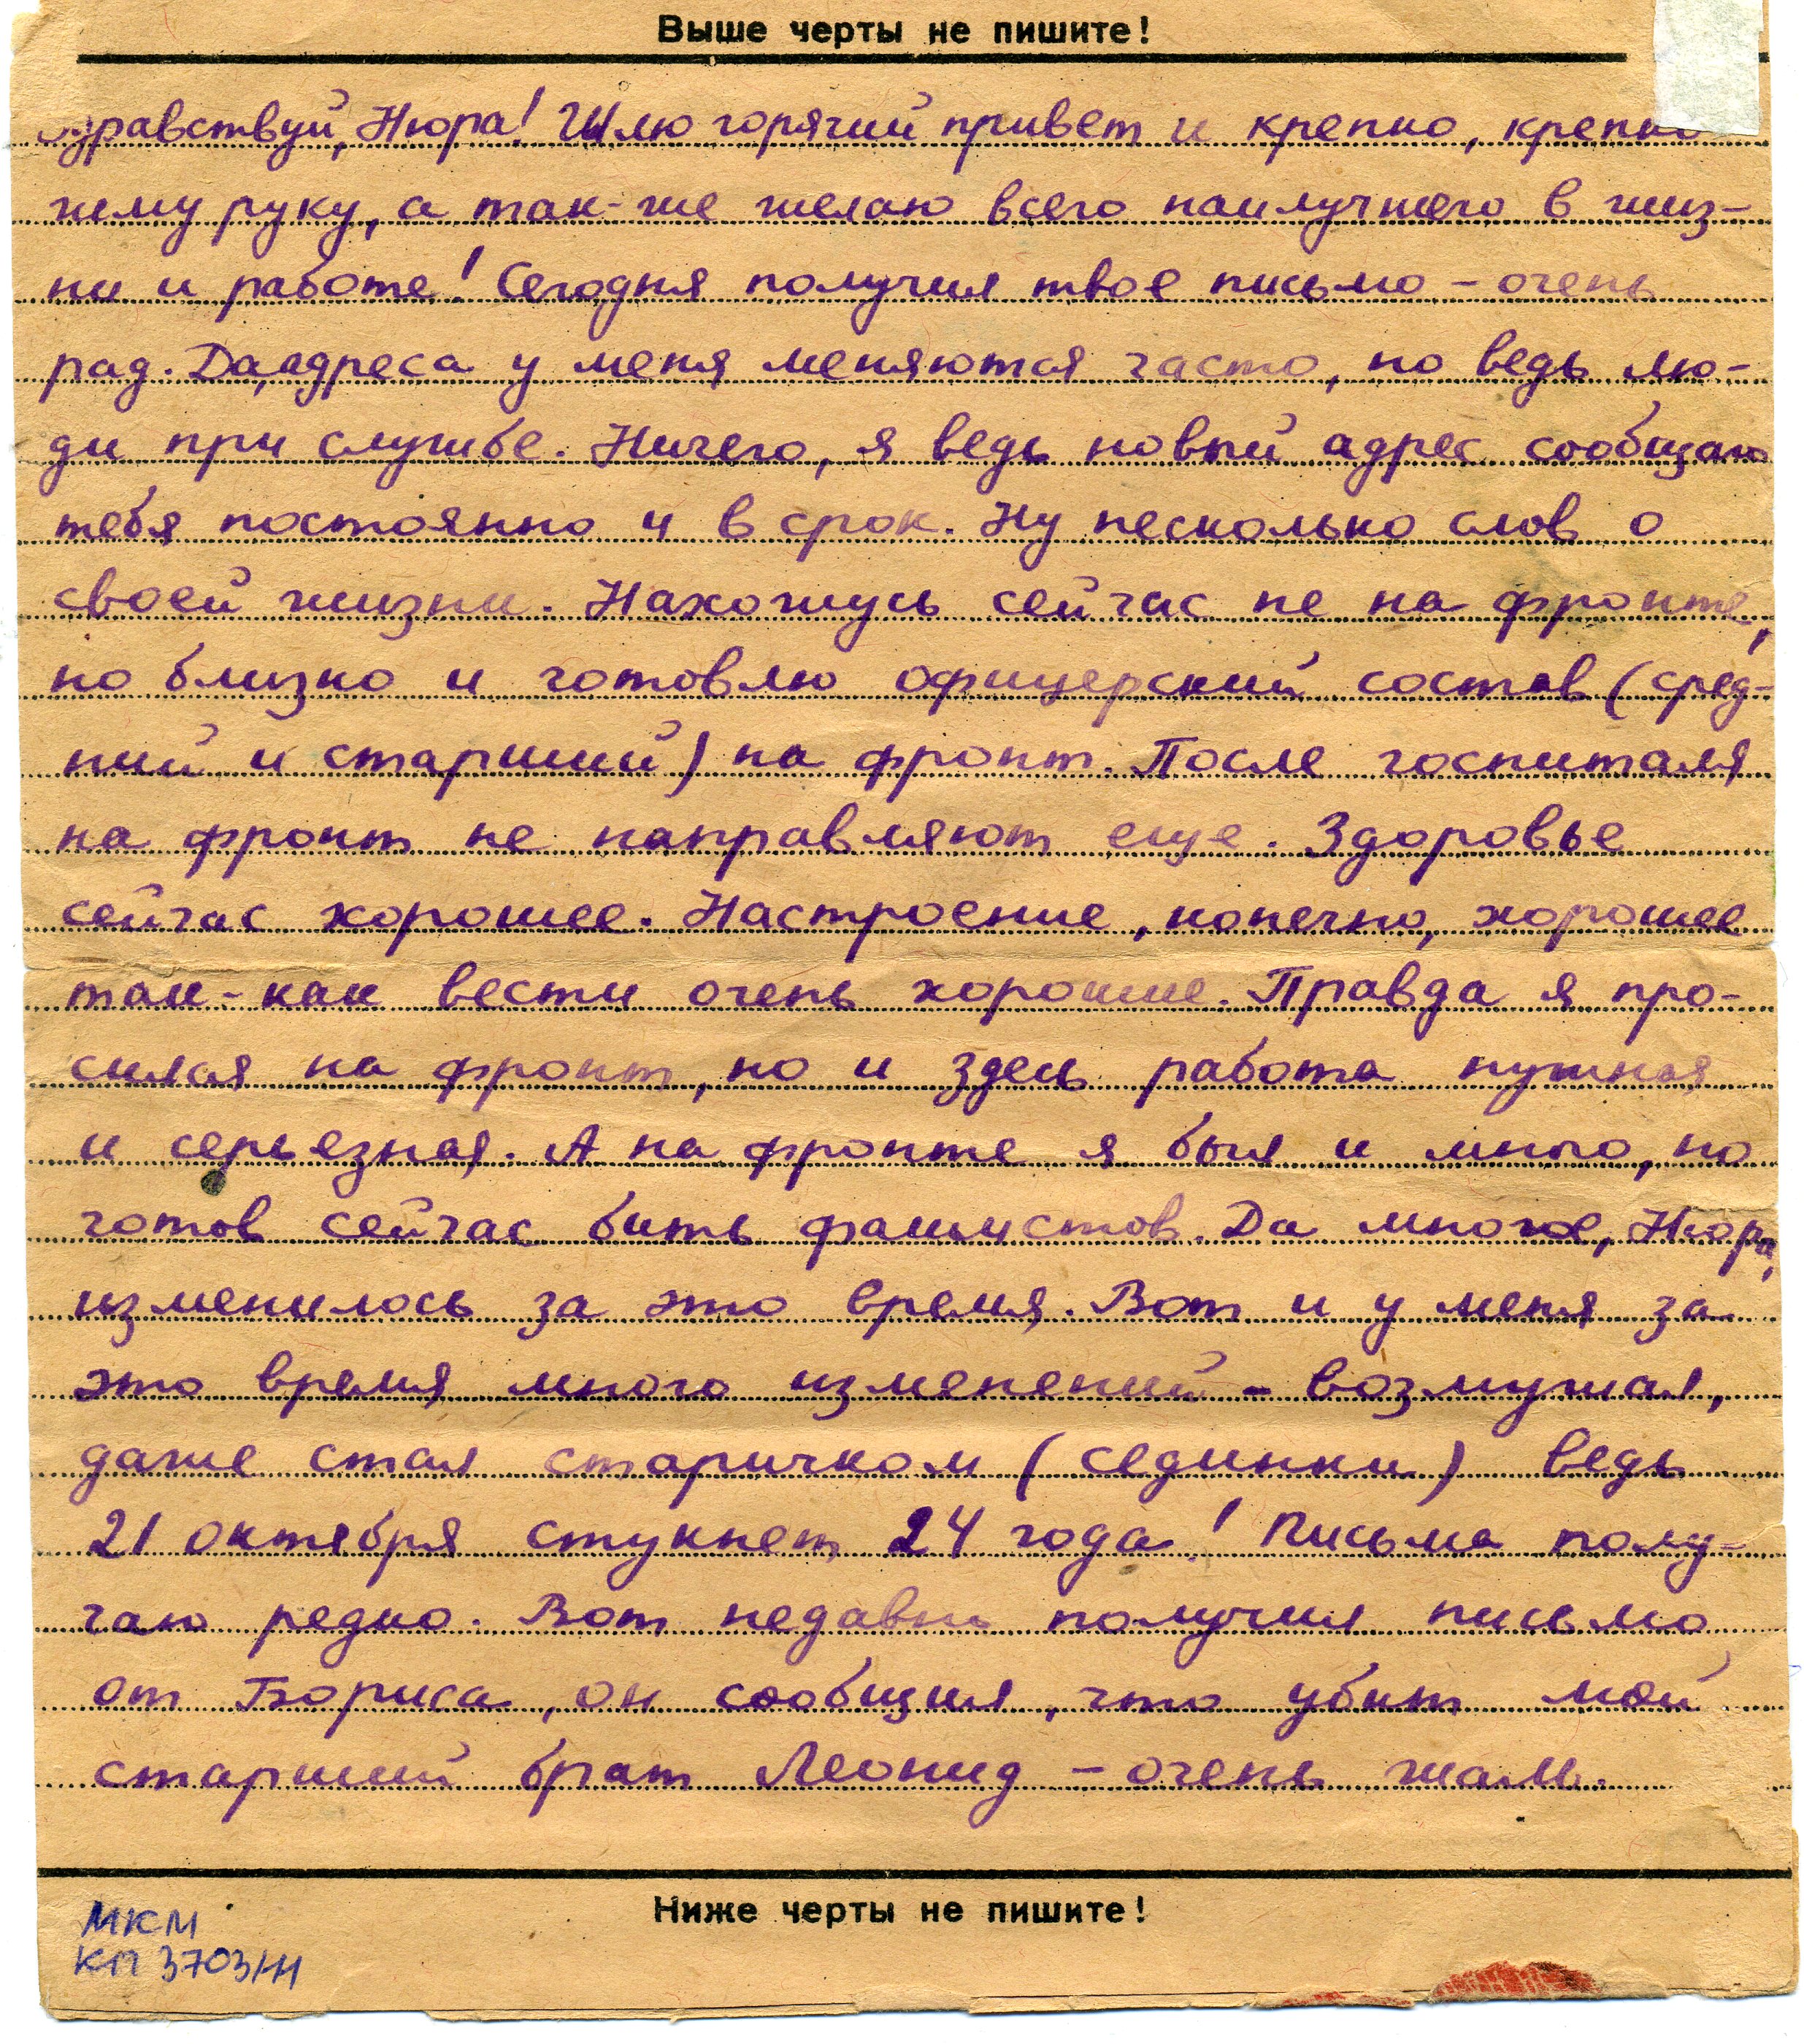 Выше черты не пишите!
Здравствуй, Нюра! Шлю горячий привет и крепко, крепко
жму руку, а так-же желаю всего наилучшего в жиз-
ни и работе! Сегодня получил твое письмо - очень
рад. Да, адреса у меня меняются часто, но ведь лю-
ди при службе. Ничего, я ведь новый адрес сообщаю
тебя постоянно и в срок. Ну несколько слов о
своей жизни. Нахожусь сейчас не на фронте,
но близко и готовлю офицерский состав (сред-
ний и старший) на фронт. После госпиталя
на фронт не направляют еще. Здоровье
сейчас хорошее. Настроение, конечно, хорошее
так-как вести очень хорошие. Правда я про-
сился на фронт, но и здесь работа нужная
и серьезная. А на фронте я был и много, но
готов сейчас бить фашистов. Да многое, Нюра,
изменилось за это время. Вот и у меня за
это время много изменений - возмужал,
даже стал старичком (сединки) ведь
21 октября стукнет 24 года! Письма полу-
чаю редко. Вот недавно получил письмо
от Бориса, он сообщил, что убит мой
старший брат Леонид - очень жаль.
Ниже черты не пишите!
МКМ
КП 3703/